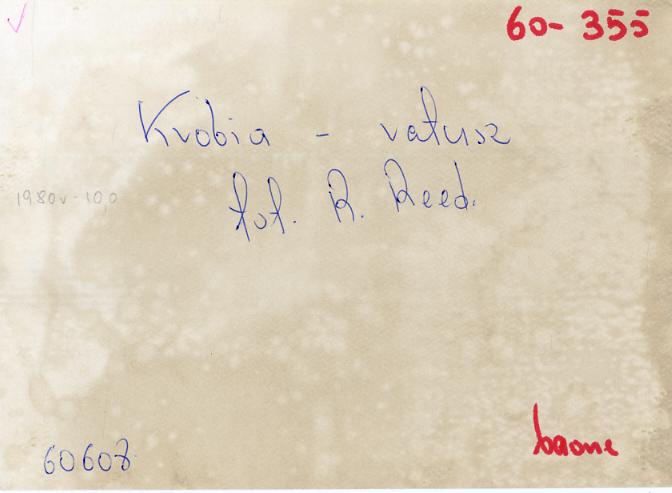 60-355
Krobia - ratusz
fot. R. Reed.
1980r-10,0
60608